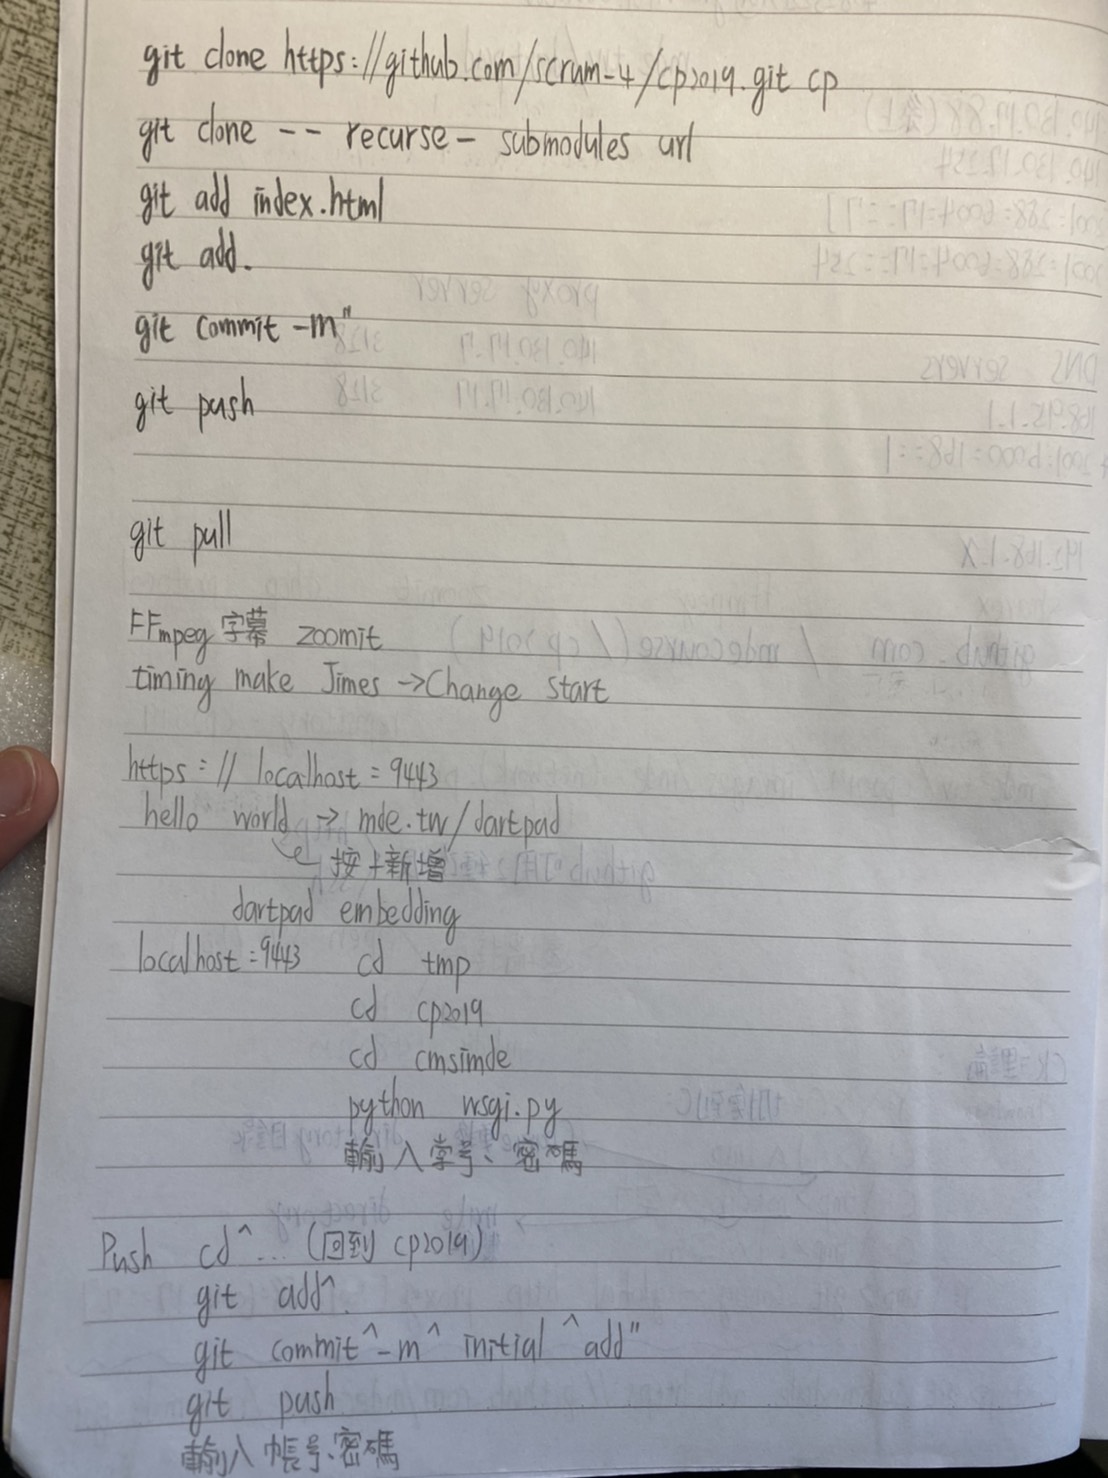 git clone https://github.com/scrum-4/cp2019.git cp
git clone -- recurse- submodules url
git add index.html
git add.
git commit -m"
git push
git pull
FFmpeg 字幕 zoomit
timing make Jimes →Change start
https://localhost:9443
hello world → mde.tw/dartpad
按+新增
dartpad embedding
localhost:9443 cd tmp
cd cp2019
cd cmsimde
python wsgi.py
輸入學號、密碼
Push cd^... (回到 cp2019)
git add^.
git commit^-m^ initial ^add"
git push
輸入帳号、密碼